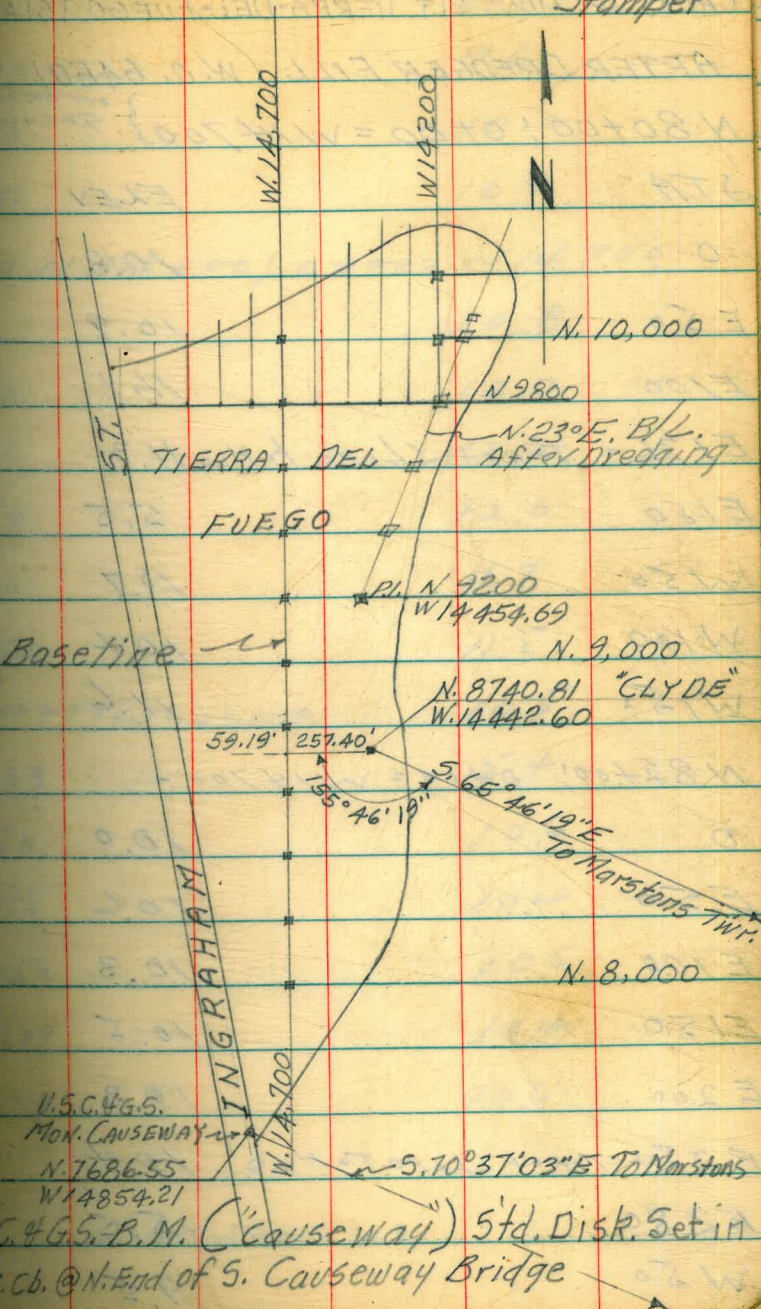 Stamper
W.14,700
W14200
N
N. 10,000
N9800
N.23°E. B/L.
After Dredging
ST.
TIERRA DEL
FUEGO
P.I. N 9200
W14454.69
Baseline
N. 9,000
N. 8740.81 "CLYDE"
W.14442.60
59.19' 257.40'
155°46'19"
S.65°46'19"E
To Marstons Twr.
INGRAHAM
N. 8,000
W.14,700
U.S.C.&G.S.
MON. CAUSEWAY
N.7686.55
W14854.21
S.70°37'03"E To Marstons
.&G.S.-B.M. ("Causeway") Std. Disk. Set in
Cb. @ N. End of S. Causeway Bridge